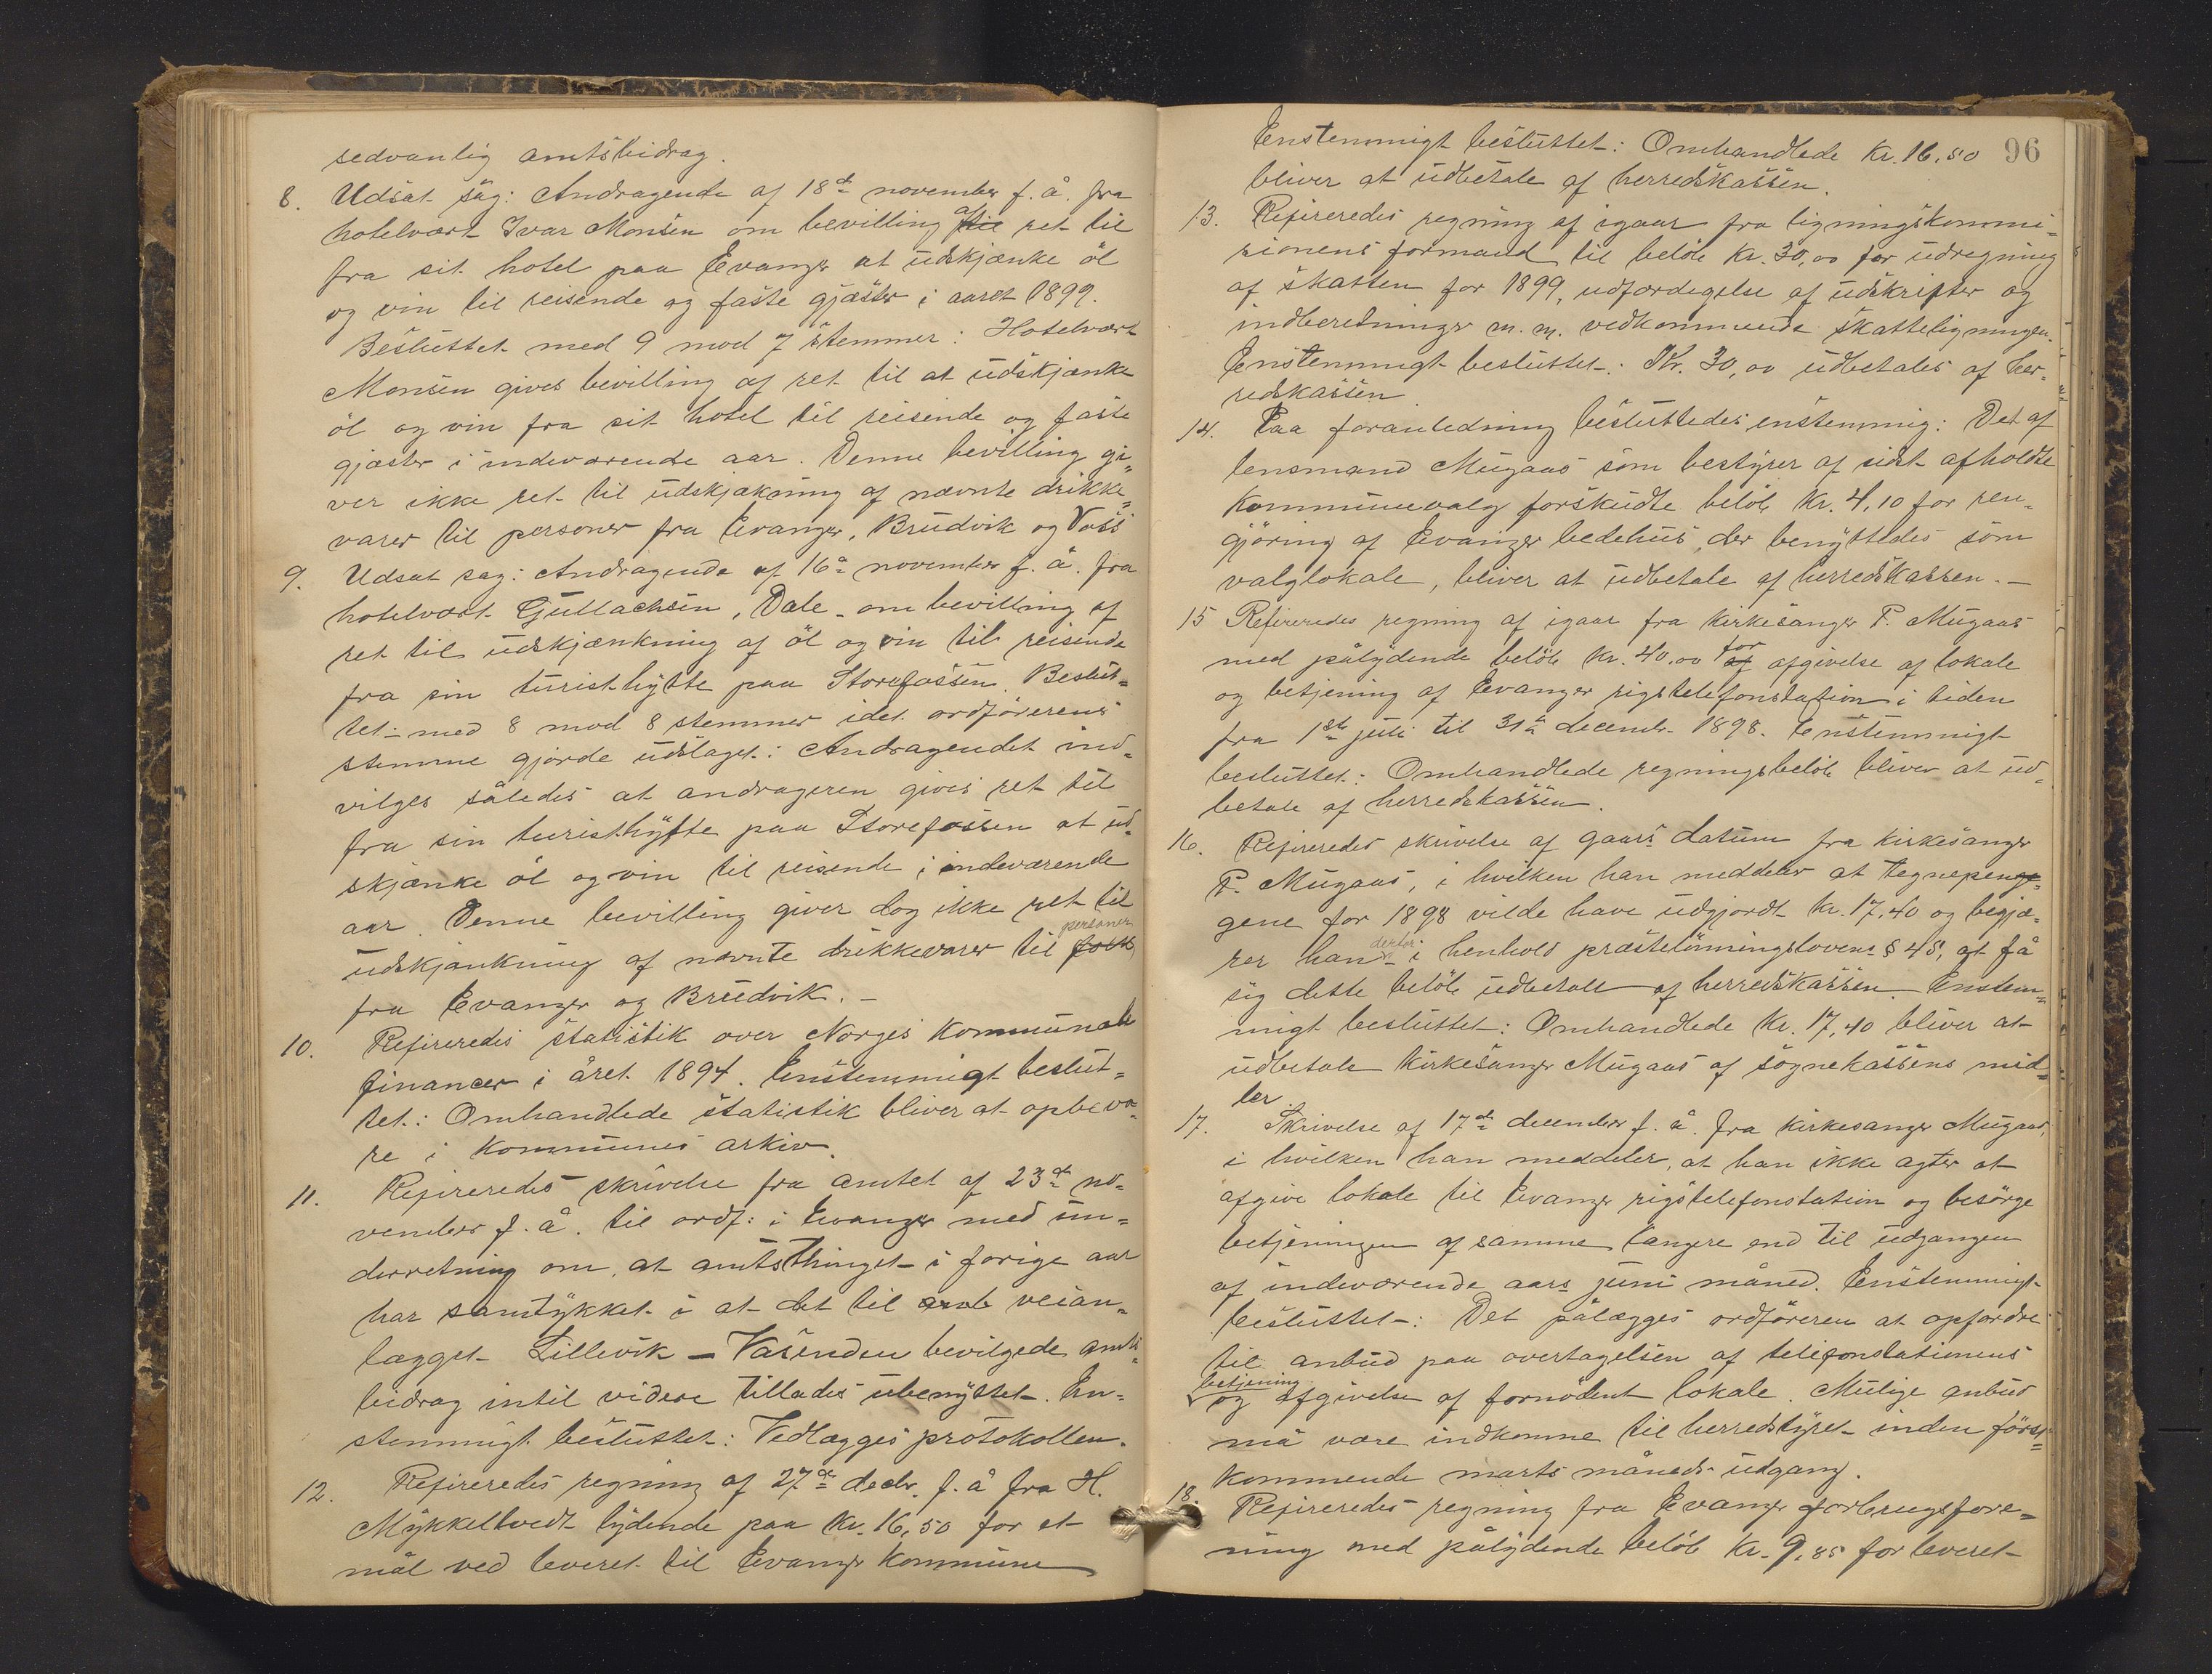 sedvanlig amtsbidrag.
8. Udsat sag: Andragende af 18de november f. å. fra
hotelvært Ivar Monsen om bevilling af til ret til
fra sit hotel paa Evanger at udskjænke öl
og vin til reisende og faste gjæster i aaret 1899.
Besluttet med 9 mod 7 stemmer: Hotelvært
Monsen gives bevilling af ret til at udskjænke
öl og vin fra sit hotel til reisende og faste
gjæster i indeværende aar. Denne bevilling gi-
ver ikke ret til udskjækning af nævnte drikke-
varer til personer fra Evanger, Brudvik og Voss
9. Udsat sag: Andragende af 16de november f. å. fra
hotelvært Gullachsen, Dale - om bevilling af
ret til udskjænkning af öl og vin til reisende
fra sin turisthytte paa Storefossen. Beslut-
tet: med 8 mod 8 stemmer idet ordförerens
stemme gjorde udslaget: Andragendet ind-
vilges således at andrageren gives ret til
fra sin turisthytte paa Storefossen at ud-
skjænke öl og vin til reisende i indeværende
aar. Denne bevilling giver dog ikke ret til
udskjænkning af nævnte drikkevarer til folk personer
fra Evanger og Brudvik. -
10. Refereredes statistik over Norges kommunale
financer i året 1894. Enstemmigt beslut-
tet: Omhandlede statistik bliver at opbeva-
re i kommunes arkiv.
11. Refereredes skrivelse fra amtet af 23de no-
vember f. å. til ordf: i Evanger med un-
derretning om, at amtsthinget i forige aar
har samtykket i at det til veian-
lægget Lillevik - Vasenden bevilgede amts-
bidrag intil videre tillades ubenyttet. En-
stemmigt besluttet: Vedlægges protokollen.
12. Refereredes regning af 27de decbr. f. å fra H.
Mykkeltvedt lydende paa Kr. 16,50 for et
mål ved leveret til Evanger kommune
96
Enstemmigt besluttet: Omhandlede Kr. 16,50
bliver at udbetale af herredskassen.
13. Refereredes regning af igaar fra ligningskommi-
sionens formand til belöb Kr. 30,00 for udregning
af skatten for 1899, udfærdigelse af udskrifter og
indberedninger m. m. vedkommende skatteligningen.
Enstemmigt besluttet: Kr. 30,00 udbetales af her-
redskassen.
14. Paa foranledning besluttedes enstemmig: Det af
lensmand Mugaas som bestyrer af sidst afholdte
kommunevalg forskudte belöb Kr. 4,10 for ren-
gjöring af Evanger bedehus, der benyttedes som
valglokale, bliver at udbetale af herredskassen. -
15 Refereredes regning af igaar fra kirkesanger P. Mugaas
med pålydende belöb Kr. 40,00 for af afgivelse af lokale
og betjening af Evanger rigstelefonstation i tiden
fra 1ste juli til 31te decemb. 1898. Enstemmigt
besluttet: Omhandlede regningsbelöb bliver at ud-
betale af herredskassen.
16. Refereredes skrivelse af gaars datum fra kirkesanger
P. Mugaas, i hvilken han meddeler at tegnepeng-
gene for 1898 vilde have udgjordt Kr. 17,40 og begjæ-
rer han derfor i henhold præstelönningslovens § 45, at få
sig dette belöb udbetalt af herredskassen. Enstem-
migt besluttet: Omhandlede Kr. 17,40 bliver at
udbetale kirkesanger Mugaas af sognekassens mid-
ler.
17. Skrivelse af 17de december f. å. fra kirkesanger Mugaas,
i hvilken han meddeler, at han ikke agter at
afgive lokale til Evanger rigstelefonstation og besörge
betjeningen af samme længere end til udgangen
af indeværende aars juni måned. Enstemmigt
besluttet: Det pålægges ordföreren at opfordre
til anbud paa overtagelsen af telefonstationens
betjening og afgivelse af fornödent lokale. Mulige anbud
må være indkomne til herredstyret inden först-
kommende marts måneds udgang.
18. Refereredes regning fra Evanger forbrugsfore-
ning med pålydende belöb Kr. 9,85 for leveret